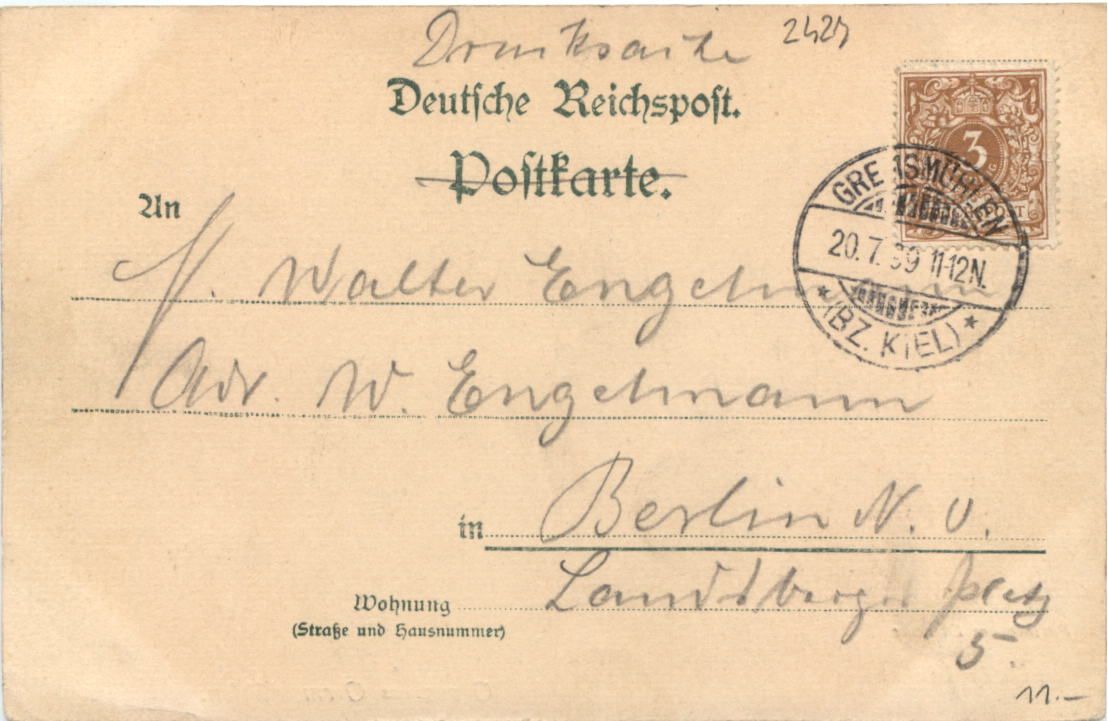 Drucksache 2424
Deutsche Reichspost.
Postkarte.
An
H. Walter Engelmann
Adr. W. Engelmann
in Berlin N. O.
Wohnung Landsberger Platz
(Straße und Hausnummer)
5.
3
GREMSMÜHLEN
20.7.99 11-12N.
*(BZ. KIEL)*
11.-